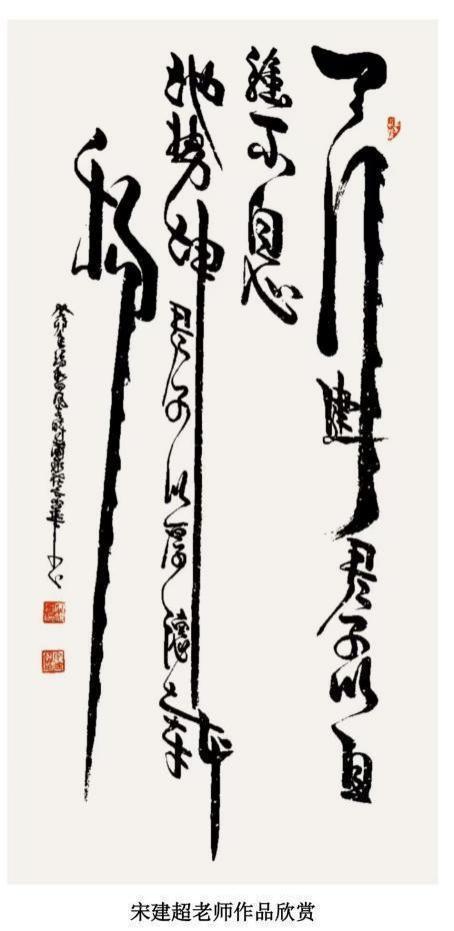 天行健君子以自
強不息
地势坤君子以厚德载
物
癸卯
宋建超老师作品欣赏